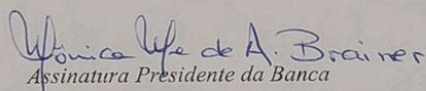 Mônica de A. Brainer
Assinatura Presidente da Banca